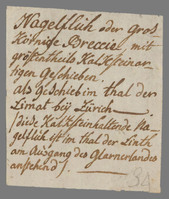 Nagelflüh oder grob
Körnige Breccie, mit
gröstentheils Kalksteinar-
tigen Geschieben,
als Geschieb im thal der
Limat bÿ Zürich —
(diese Kalksteinhaltende Na-
gelflüh ist im thal der Linth
am Ausgang des Glarnerlandes
anstehend).